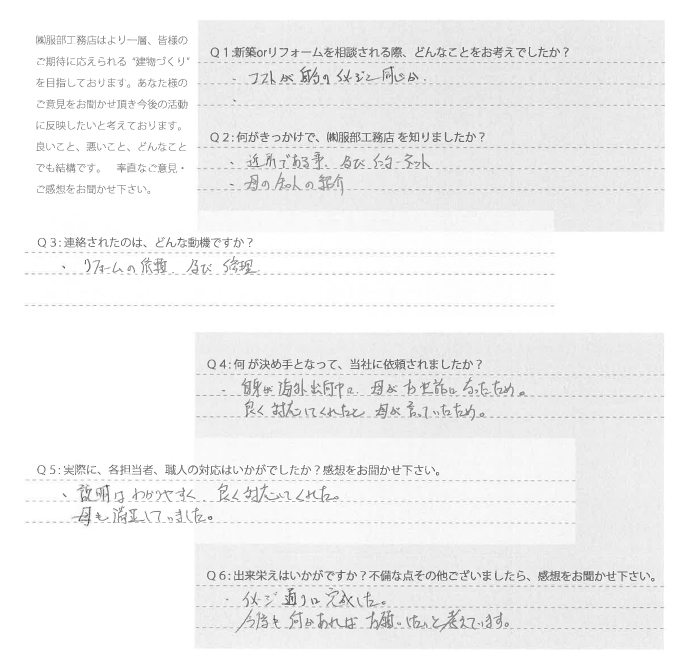 ㈱服部工務店はより一層、皆様の
ご期待に応えられる “建物づくり”
を目指しております。あなた様の
ご意見をお聞かせ頂き今後の活動
に反映したいと考えております。
良いこと、悪いこと、どんなこと
でも結構です。 率直なご意見・
ご感想をお聞かせ下さい。
Q 1 :新築orリフォームを相談される際、どんなことをお考えでしたか？
・ コストが 自分の イメージと 同じか.
・
Q 2 : 何がきっかけで、㈱服部工務店 を知りましたか？
・ 近所である事. 及び インターネット
・ 母の ネットの 紹介
Q 3 : 連絡されたのは、どんな動機ですか？
・ リフォームの 依頼. 及び 修理.
Q 4 : 何 が決め手となって、当社に依頼されましたか？
・ 自身が 海外出向中に 母が お世話に なったため。
良く 対応してくれたと 母が 言っていたため。
Q 5 : 実際に、各担当者、職人の対応はいかがでしたか？感想をお聞かせ下さい。
・ 説明は わかりやすく. 良く 対応してくれた。
母も 満足していました。
Q 6 : 出来栄えはいかがですか？不備な点その他ございましたら、感想をお聞かせ下さい。
・ イメージ 通りに 完成した。
今後も 何かあれば お願いしたいと 考えています。